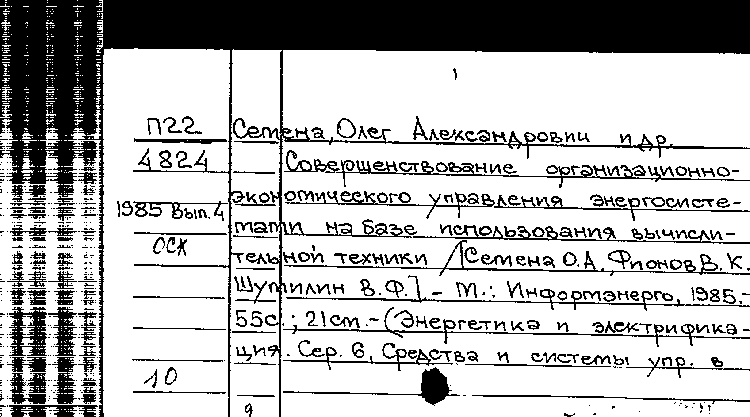 1
П22 Семена, Олег Александрович и др.
4824 Совершенствование организационно-
экономического управления энергосисте-
1985 Вып. 4
мами на базе использования вычисли-
ОСК
тельной техники / [Семена О.А., Фионов В. К.
Шумилин В.Ф.] - М.: Информэнерго, 1985.-
55с.; 21см.- (Энергетика и электрифика-
ция. Сер. 6, Средства и системы упр. в
10
9